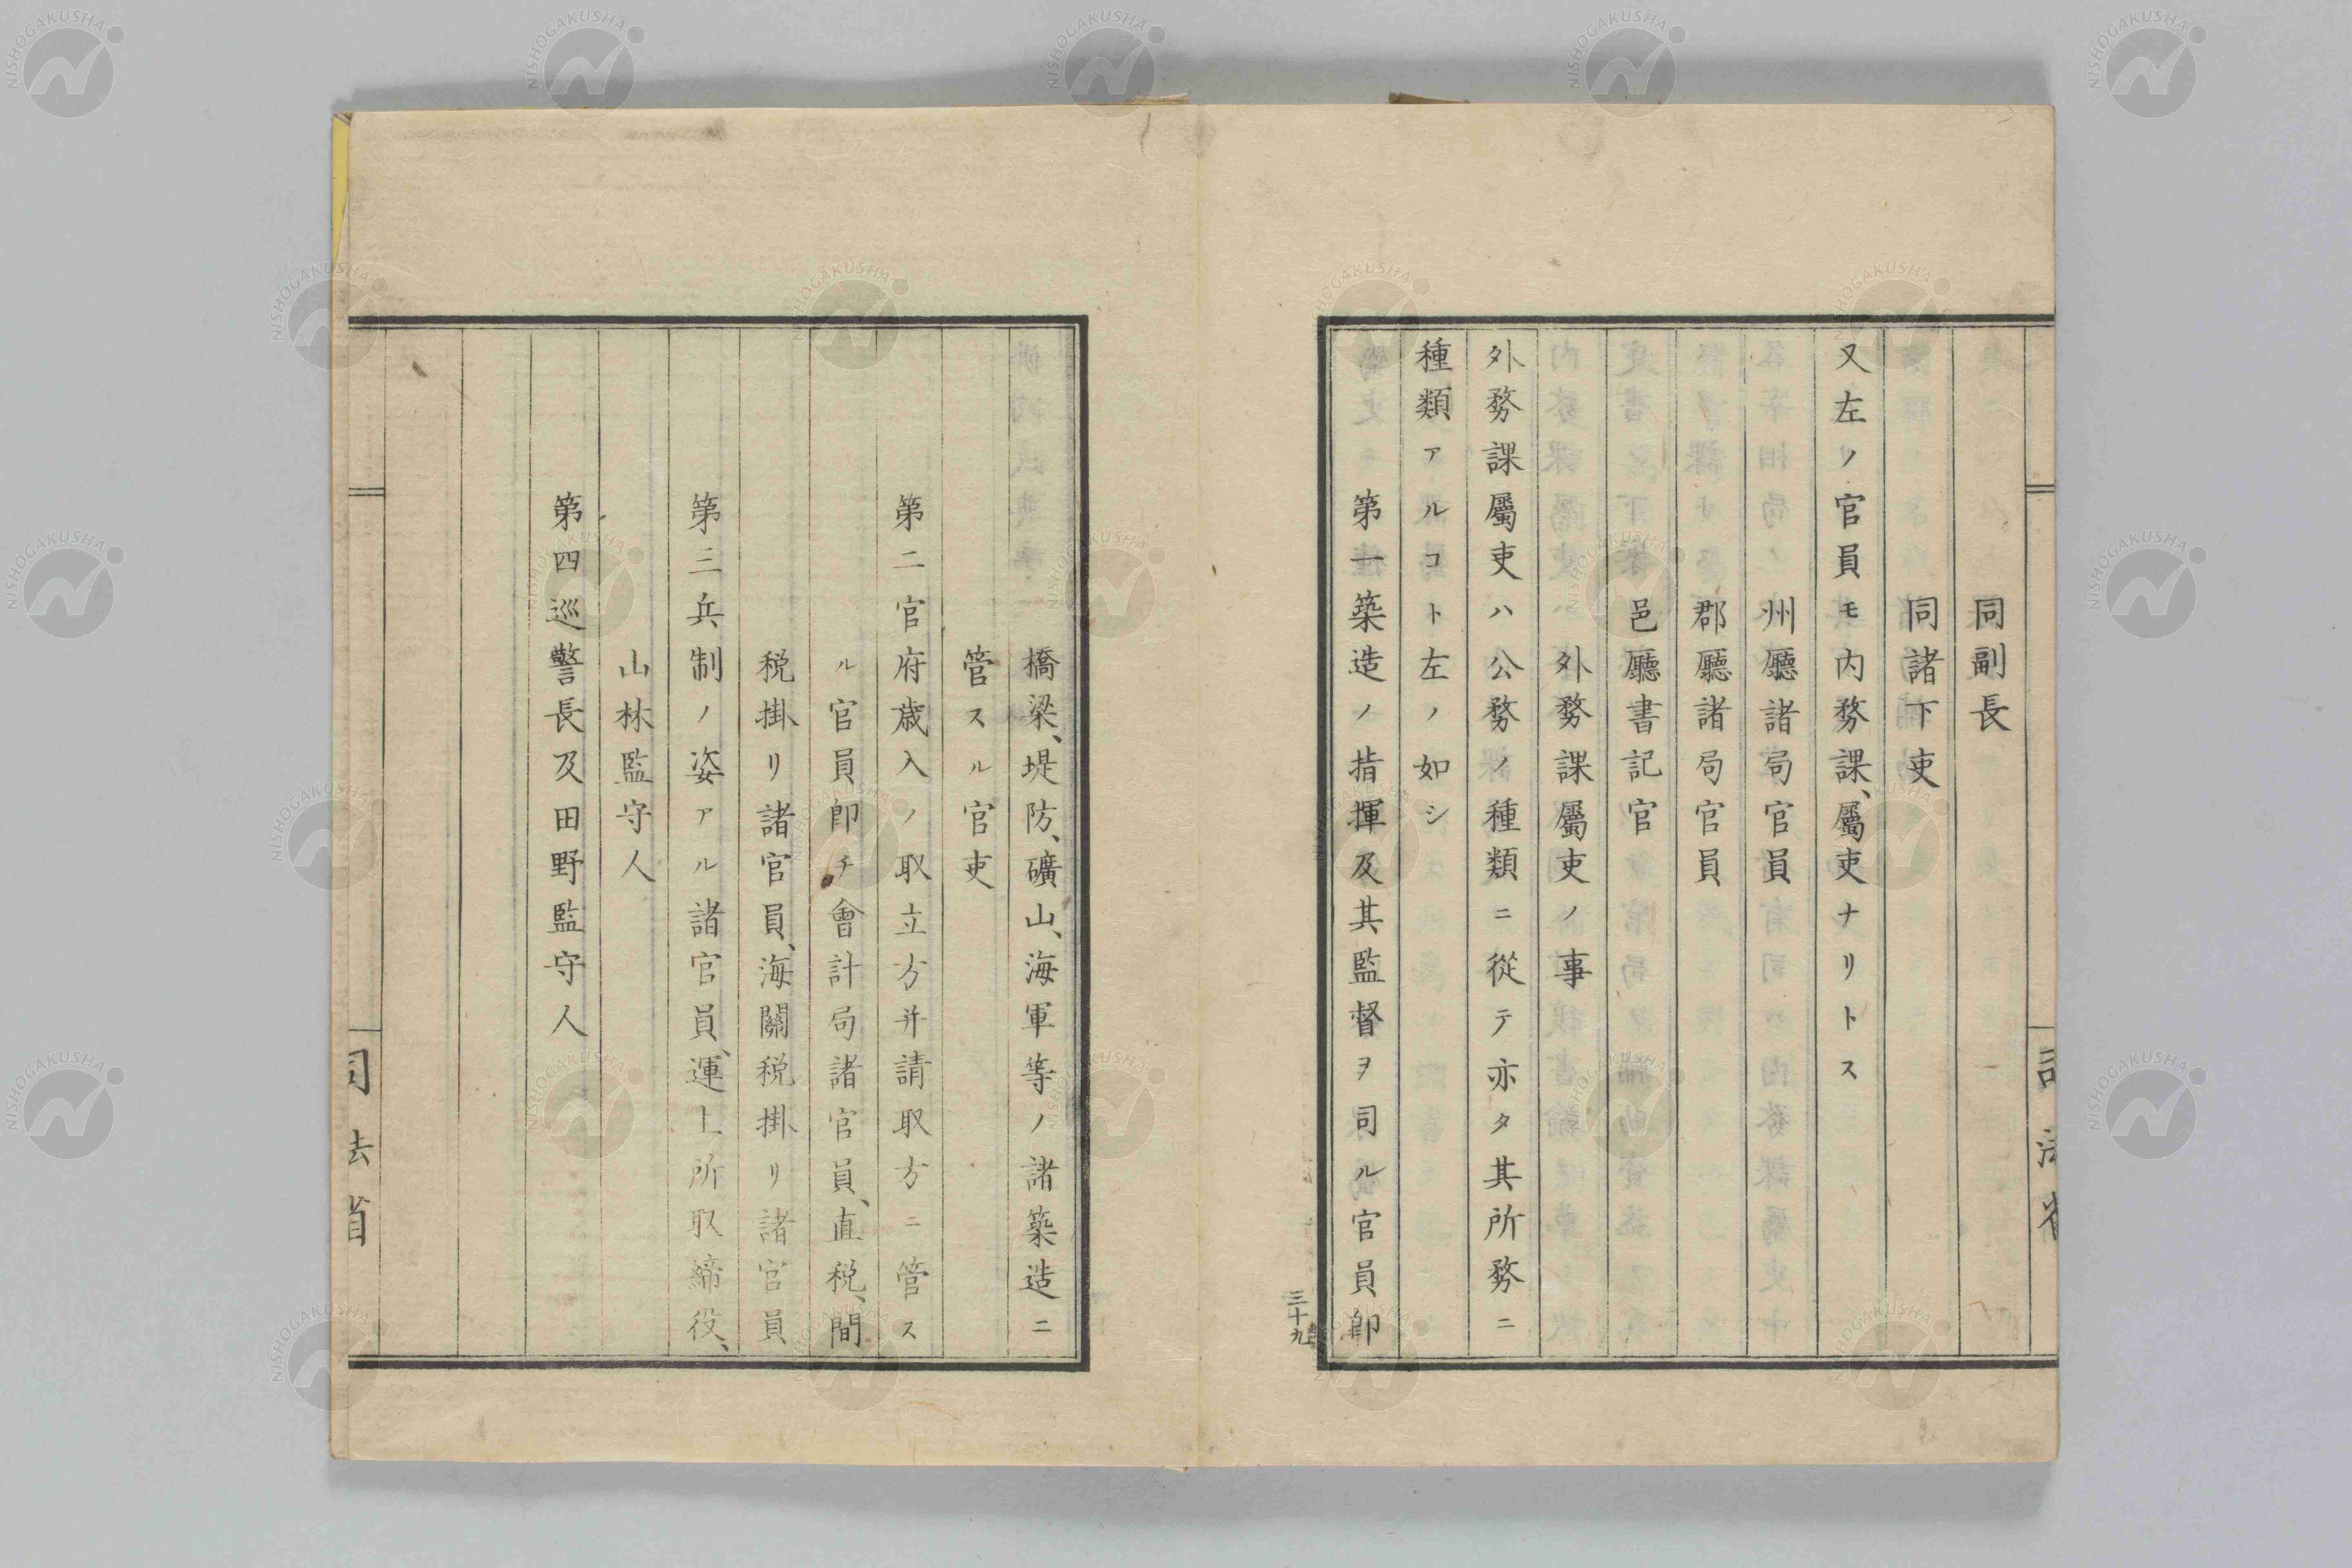 同副長
同諸下吏
又左ノ官員モ内務課、屬吏ナリトス
州廳諸局官員
郡廳諸局官員
邑廳書記官
外務課屬吏ノ事
外務課屬吏ハ公務ノ種類ニ從テ亦タ其所務ニ
種類アルコト左ノ如シ
第一築造ノ指揮及其監督ヲ司ル官員卽
三十九
橋梁、堤防、礦山、海軍等ノ諸築造ニ
管スル官吏
第二官府歳入ノ取立方并請取方ニ管ス
ル官員卽チ會計局諸官員、直税、間
税掛リ諸官員、海關税掛リ諸官員
第三兵制ノ姿アル諸官員、運上所取締役、
山林監守人
第四巡警長及田野監守人
司法省
NISHOGAKUSHA